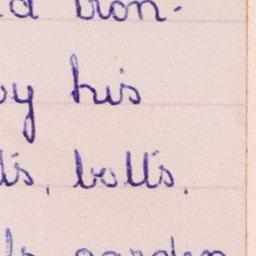 iron-
by his
bolts.
garden